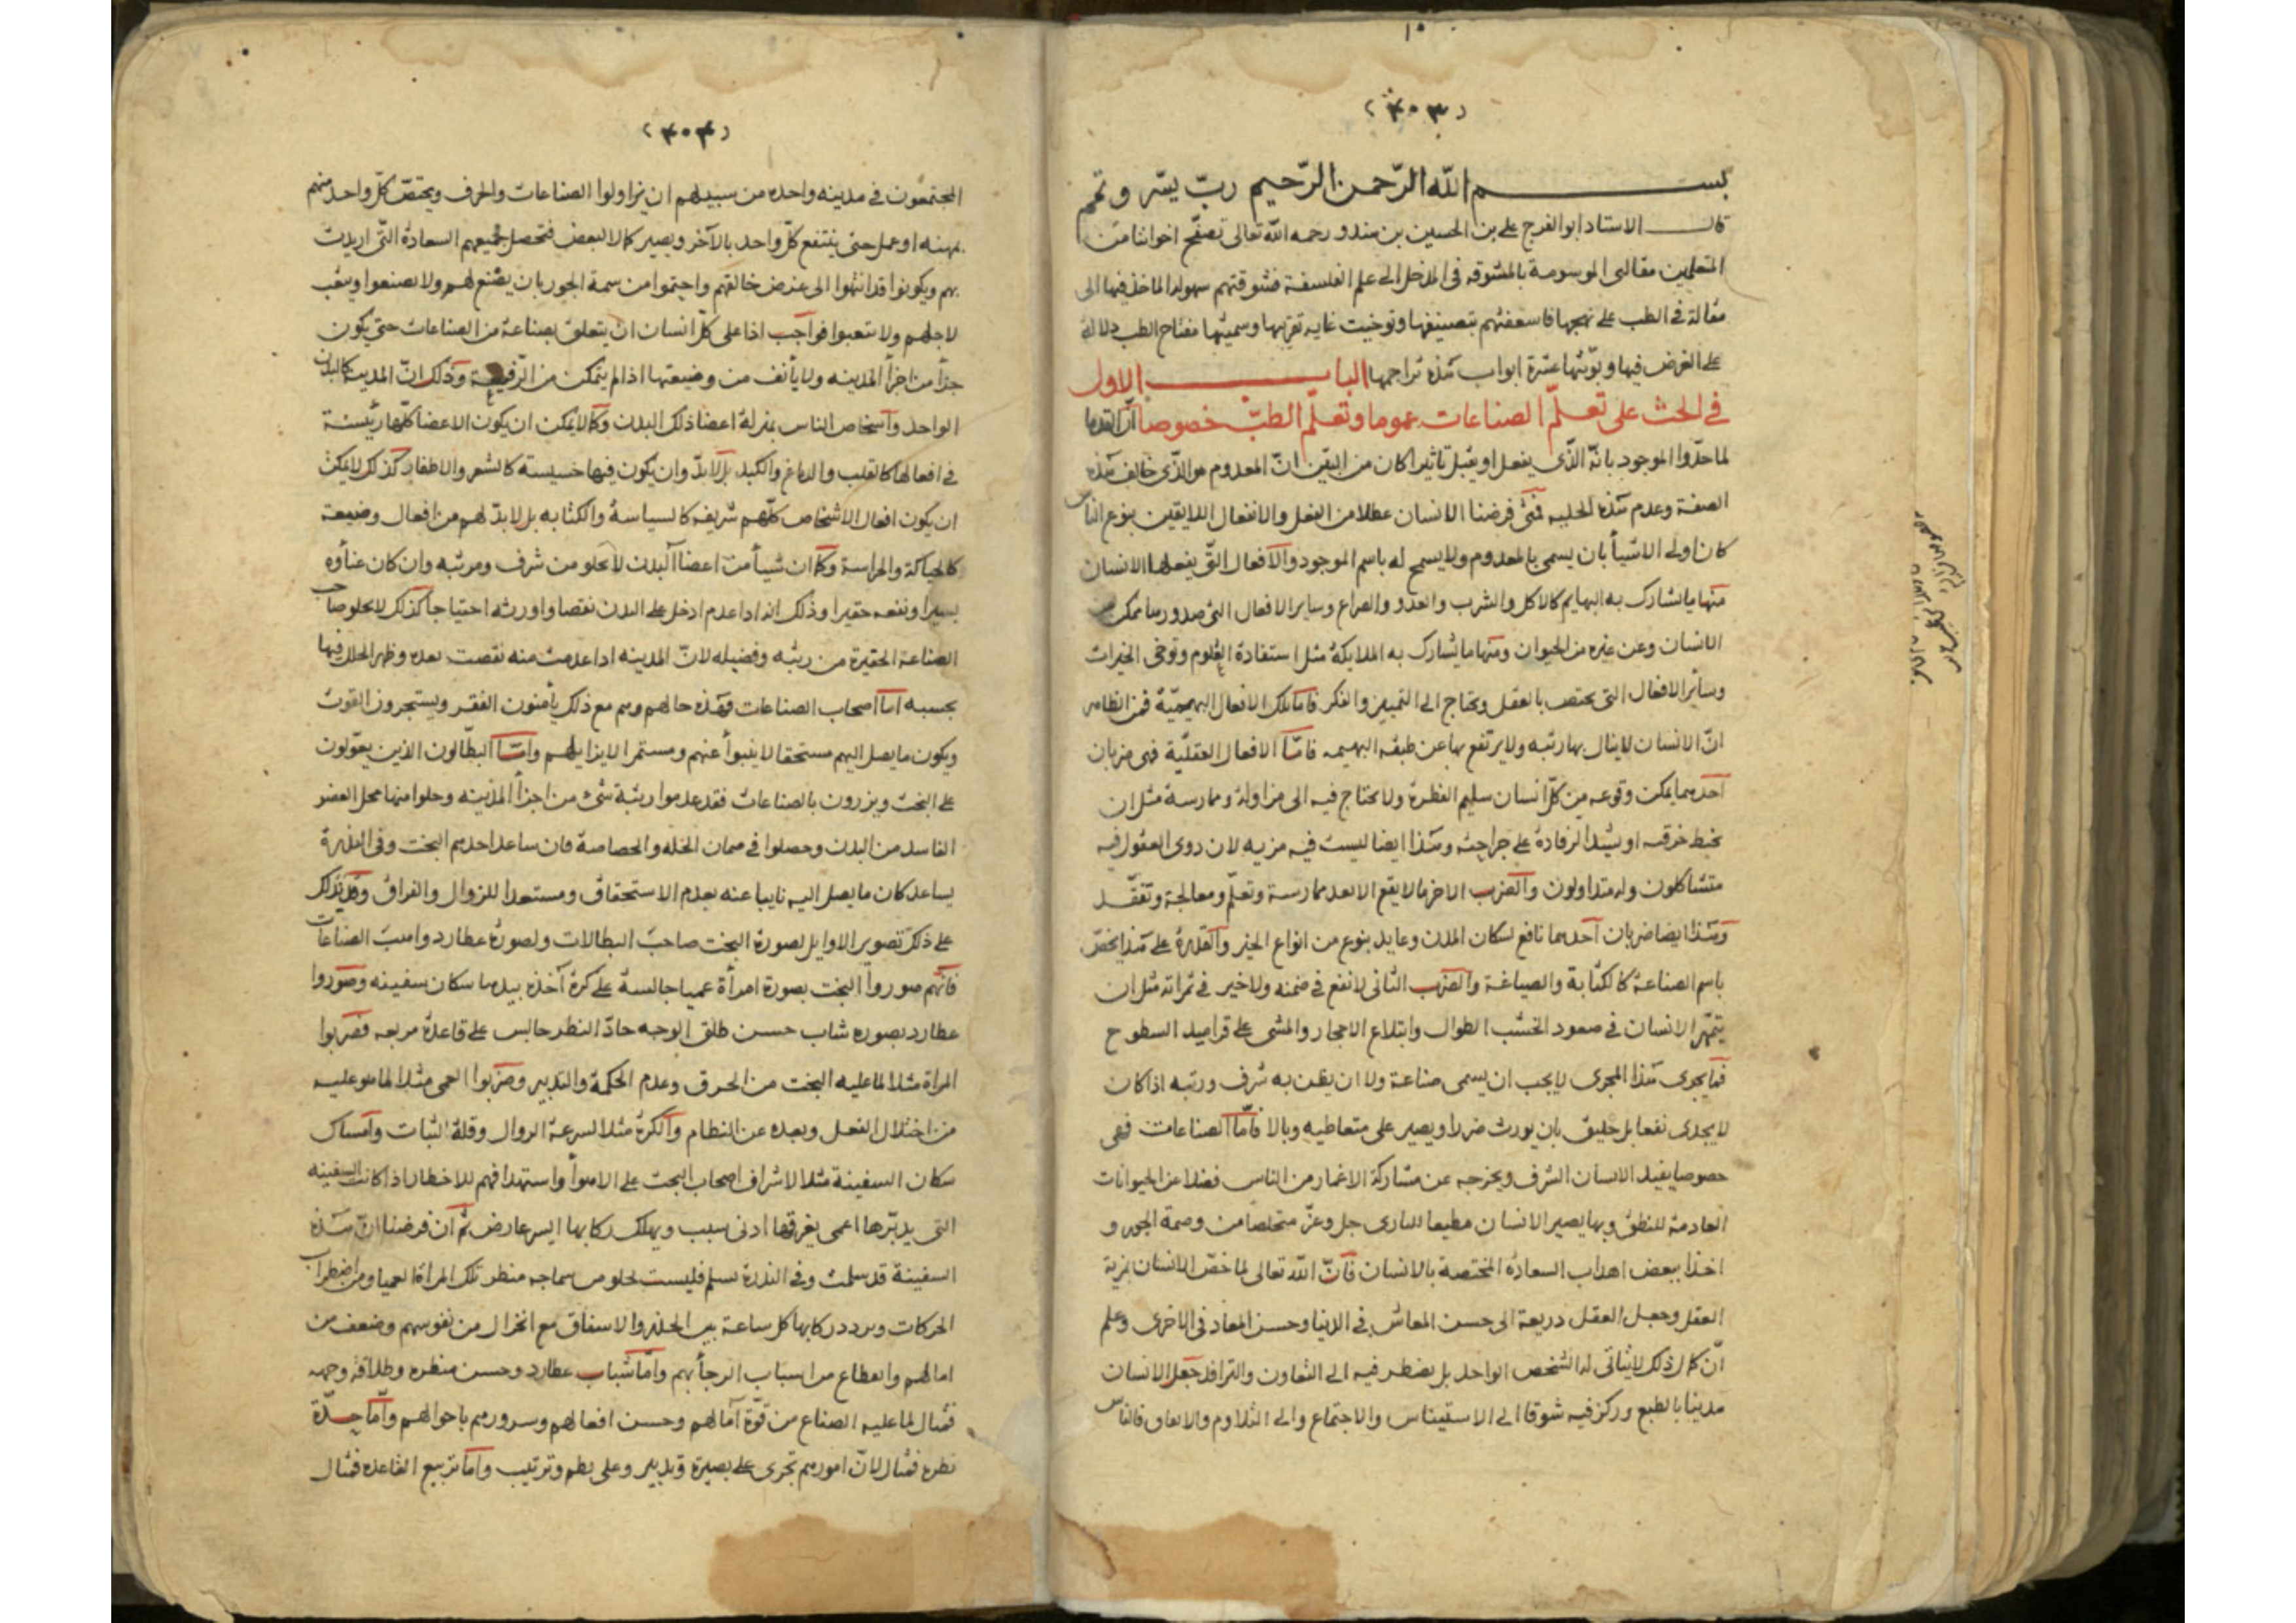 (٤٠٣)
بســـــم الله الرّحمن الرّحيم ربّ يسّر وتمم
قال الاستاد ابو الفرج على بن الحسين بن هندو رحمه الله تعالى تصفّح اخواننا من
المتعلمين مقالتى الموسومة بالمشوقه فى المدخل الى علم الفلسفة فشوقتهم سهولة الماخذ فيها الى
مقالة فى الطب على نهجها فاسعفتهم بتصنيفها وتوخيت غايه تقربها وسميتها مفتاح الطب دلالة
على الغرض فيها وبوّبتها عشرة ابواب هذه تراجمها البابـــــ الاول
فى الحث على تعلّم الصناعات عموما وتعلّم الطبّ خصوصا ان القدما
لما حدّوا الموجود بانّه الّذى يفعل او يقبل تاثيرا كان من اليقين انّ المعدوم هو الّذى خالف هذه
الصفة وعدم هذه الحليه فمتى فرضنا الانسان عطلا من الفعل والانفعال اللايقين بنوع الناس
كان اولى الاشيأ بان يسمى بالمعدوم ولا يسمح له باسم الموجود والافعال التّى يفعلها الانسان
منها ما يشارك به البهايم كالاكل والشرب والعدو والصراع وساير الافعال التى صدورها ممكن من
الانسان وعن غيره من الحيوان ومنها ما يشارك به الملايكة مثل استفادة العلوم وتوخى الخيرات
وسائر الافعال التى يختص بالعقل ويحتاج الى التمييز والفكر فاما تلك الافعال البهيميّة فمن الظاهر
انّ الانسان لا ينال بها رتبه ولا يرتفع بها عن طبقه البهيمه فامّا الافعال العقليّة فهى ضربان
احدهما يمكن وقوعه من كلّ انسان سليم الفطرة ولا يحتاج فيه الى مزاولة وممارسة مثل ان
يخيط خرقه او يشد الرفادة على جراحته وهذا ايضا ليست فيه مزيه لان ذوى العقول فيه
متشاكلون وله متداولون والضرب الاخر ما لا يقع الا بعد ممارسة وتعلّم ومعالجة وتفقّـد
وهذا ايضا ضربان احدهما نافع لسكان المدن وعايد بنوع من انواع الخير والقدرة على هذا يختصّ
باسم الصناعة كالكتابة والصياغة والضرب الثانى لا نفع فى ضمنه ولا خير فى ثمراته مثل ان
يتمهّر الانسان فى صعود الخشب الطوال وابتلاع الاحجار والمشى على قراميد السطوح
فما يجرى هذا المجرى لا يجب ان يسمى صناعة ولا ان يظن به شرف ورتبه اذا كان
لا يجدى نفعا بل خليق بان يورث ضررا ويصير على متعاطيه وبالا فامّا الصناعات فهى
خصوصا يفيد الانسان الشرف ويخرجه عن مشاركة الاغمار من الناس فضلا عن الحيوانات
العادمة للنطق وبها يصير الانسان مطيعا للبارى جل وعزّ متخلصا من وصمة الجور و
اخذا ببعض اهداب السعادة المختصة بالانسان فانّ الله تعالى لما خصّ الانسان بمزية
العقل وجعل العقل ذريعة الى حسن المعاش فى الدنيا وحسن المعاد فى الاخرى وعلم
انّ كل ذلك لا يتأتى له الشخص الواحد بل يضطر فيه الى التعاون والترافد جعل الانسان
مدنيا بالطبع وركز فيه شوقا الى الاستيناس والاجتماع والى التلاوم والاتفاق فالناس
(٤٠٤)
المجتمعون فى مدينه واحده من سبيلهم ان يزاولوا الصناعات والحرف ويختصّ كلّ واحد منهم
بمهنه او عمل حتى ينتفع كلّ واحد بالآخر ويصير كالا لبعض فتحصل لجميعهم السعادة التّى اريدت
بهم ويكونوا قد انتهوا الى غرض خالقهم واحتموا من سمة الجور بان يصنع لهم ولا يصنعوا ويتعب
لاجلهم ولا يتعبوا فواجب اذا على كلّ انسان ان يتعلق بصناعة من الصناعات حتى يكون
جزأ من اجزأ المدينه ولا يأنف من وضيعتها اذا لم يتمكن من الرّفيعة وذلك انّ المدينة كالبدن
الواحد وأشخاص الناس بمنزلة اعضا ذلك البدن وكما لا يمكن ان يكون الاعضا كلّها رئيسة
فى افعالها كالقلب والدماغ والكبد بل لا بدّ وان يكون فيها خسيسة كالشعر والاظفار كذلك لا يمكن
ان يكون افعال الاشخاص كلّهم شريفه كالسياسة والكتابه بل لا بدّ لهم من افعال وضيعة
كالحياكة والحراسة وكما ان شيأ من اعضأ البدن لا يخلو من شرف ومرتبه وان كان غنأوه
يسيرا ونفعه حقيرا وذلك انه اذا عدم ادخل على البدن نقصا واورثه احتياجا كذلك لا يخلو صاحب
الصناعة الحقيرة من رتبه وفضيله لانّ المدينه اذا عدمت منه نقصت بعده وظهر الخلل فيها
بحسبه امّا اصحاب الصناعات فهذه حالهم وهم مع ذلك يأمنون الفقر ويستجرون القوت
ويكون ما يصل اليهم مستحقا لا ينبوأ عنهم ومستمرا لا يزايلهم وامّـا البطّالون الذين يعوّلون
على البخت ويزرون بالصناعات فقد عدموا رتبة شئ من اجزأ المدينه وحلوا منها محل العضو
الفاسد من البدن وحصلوا فى ضمان الخلّه والخصاصة فان ساعد احدهم البخت وفى الندرة
يساعد كان ما يصل اليه نابيا عنه بعدم الاستحقاق ومستعدا للزوال والفراق وقد يدلّك
على ذلك تصوير الاوايل لصورة البخت صاحب البطالات ولصورة عطارد واهب الصناعات
فانّهم صوروا البخت بصورة امرأة عميا جالسة على كرة آخذه بيدها سكان سفينه وصوّروا
عطارد بصوره شاب حسن طلق الوجه حادّ النظر جالس على قاعدة مربعه فضربوا
المراة مثلا لما عليه البخت من الخرق وعدم الحكمة والتدبير وضربوا العمى مثلا لما هو عليه
من اختلال الفعل وبعده عن النظام والكرة مثلا لسرعة الزوال وقلة الثبات وامساك
سكان السفينة مثلا لاشراف اصحاب البخت على الاهوأ واستهدافهم للاخطار اذا كانت السفينه
التى يدبّرها اعمى يغرقها ادنى سبب ويهلك ركابها ايسر عارض ثم ان فرضنا انّ هذه
السفينة قد سلمت وفى الندرة تسلم فليست تخلو من سماجه منظر تلك المراة العميا ومن اضطراب
الحركات وتردد ركابها كل ساعة بين الحذر والاشفاق مع انخزال من نفوسهم وضعف من
امالهم وانقطاع من اسباب الرجأ بهم وامّا شباب عطارد وحسن منظره وطلاقة وجهه
فمثال لما عليه الصناع من قوّة آمالهم وحسن افعالهم وسرورهم باحوالهم وامّا حدّة
نظره فمثال لانّ امورهم تجرى على بصيرة وتدبير وعلى نظم وترتيب وامّا تربيع القاعده فمثال